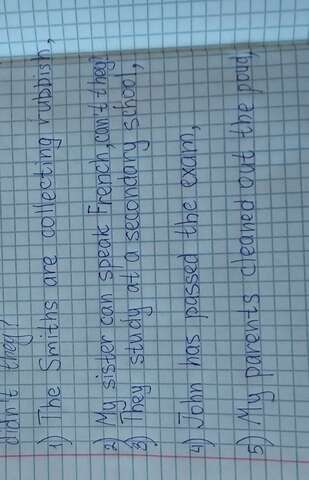 didn't they?
1) The Smiths are collecting rubbish,
2) My sister can speak French, can't they?
3) They study at a secondary school,
4) John has passed the exam,
5) My parents cleaned out the pond,